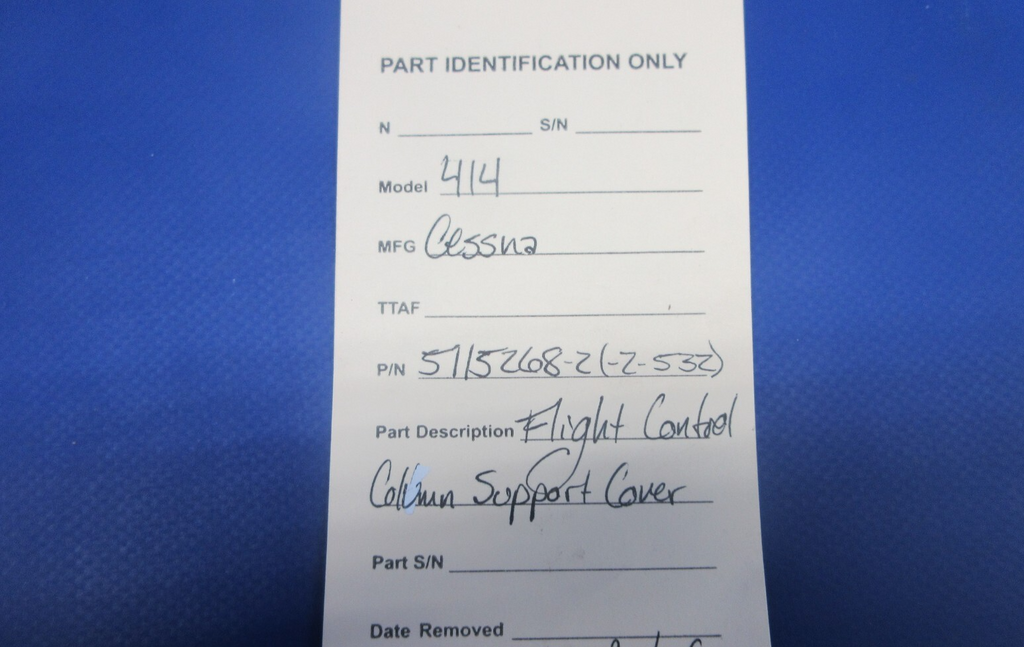 PART IDENTIFICATION ONLY
N S/N
Model 414
MFG Cessna
TTAF
P/N 5715268-2 (-2-532)
Part Description Flight Control
Column Support Cover
Part S/N
Date Removed